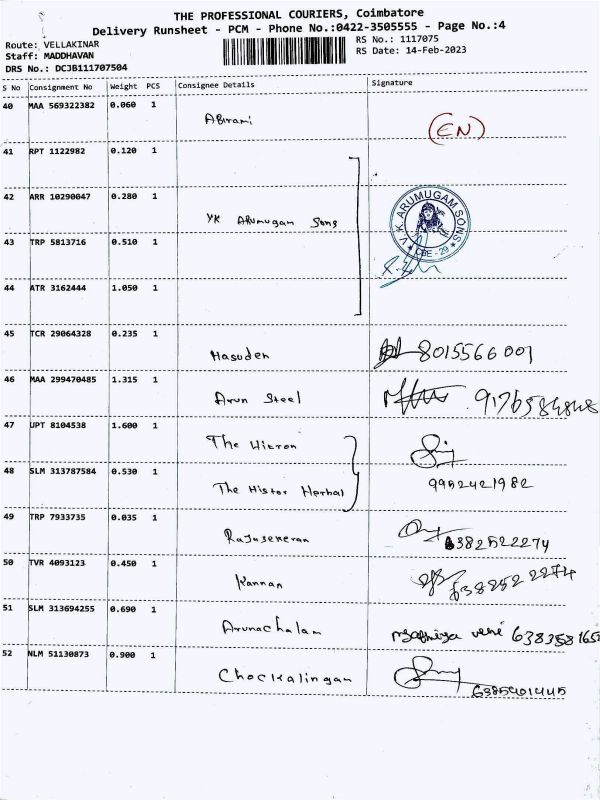 THE PROFESSIONAL COURIERS, Coimbatore
Delivery Runsheet - PCM - Phone No.:0422-3505555 - Page No.:4
Route: VELLAKINAR
RS No.: 1117075
Staff: MADDHAVAN
RS Date: 14-Feb-2023
DRS No.: DCJB111707504
S No Consignment No Weight PCS Consignee Details Signature
40 MAA 569322382 0.060 1
Abirami (EN)
41 RPT 1122982 0.120 1
42 ARR 10290047 0.280 1
VK Arumugam Sons
V.K. ARUMUGAM SONS
★ CBE - 29 ★
43 TRP 5813716 0.510 1
44 ATR 3162444 1.050 1
45 TCR 29064328 0.235 1
Hasuden 8015566001
46 MAA 299470485 1.315 1
Arun Steel
47 UPT 8104538 1.600 1
The Hitron
48 SLM 313787584 0.530 1
The Histor Herbal 9952421982
49 TRP 7933735 0.035 1
Rajasekeran 6382522274
50 TVR 4093123 0.450 1
Kannan 6382522274
51 SLM 313694255 0.690 1
Arunachalam
52 NLM 51130873 0.900 1
Chockalingan